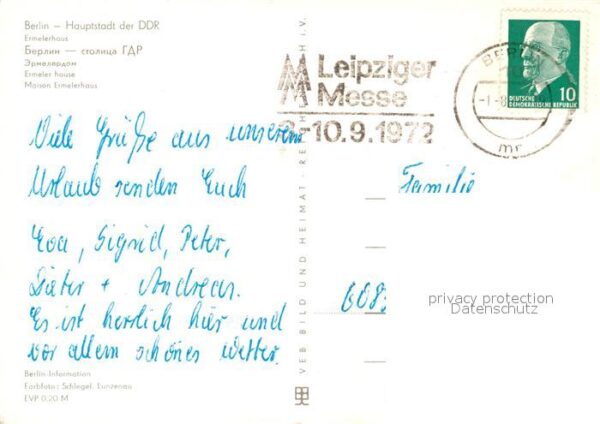 Berlin – Hauptstadt der DDR
Ermelerhaus
Берлин — столица ГДР
Эрмелердом
Ermeler house
Maison Ermelerhaus
Leipziger
Messe
-10.9.1972
BER
DEUTSCHE
DEMOKRATISCHE REPUBLIK
10
Viele Grüße aus unserem
Urlaub senden Euch
Eva, Sigrid, Peter,
Dieter + Andreas.
Es ist herrlich hier und
vor allem schönes Wetter.
Familie
608
privacy protection
Datenschutz
VEB BILD UND HEIMAT · REICHENBACH I. V.
Berlin-Information
Farbfoto: Schlegel, Lunzenau
EVP 0,20 M